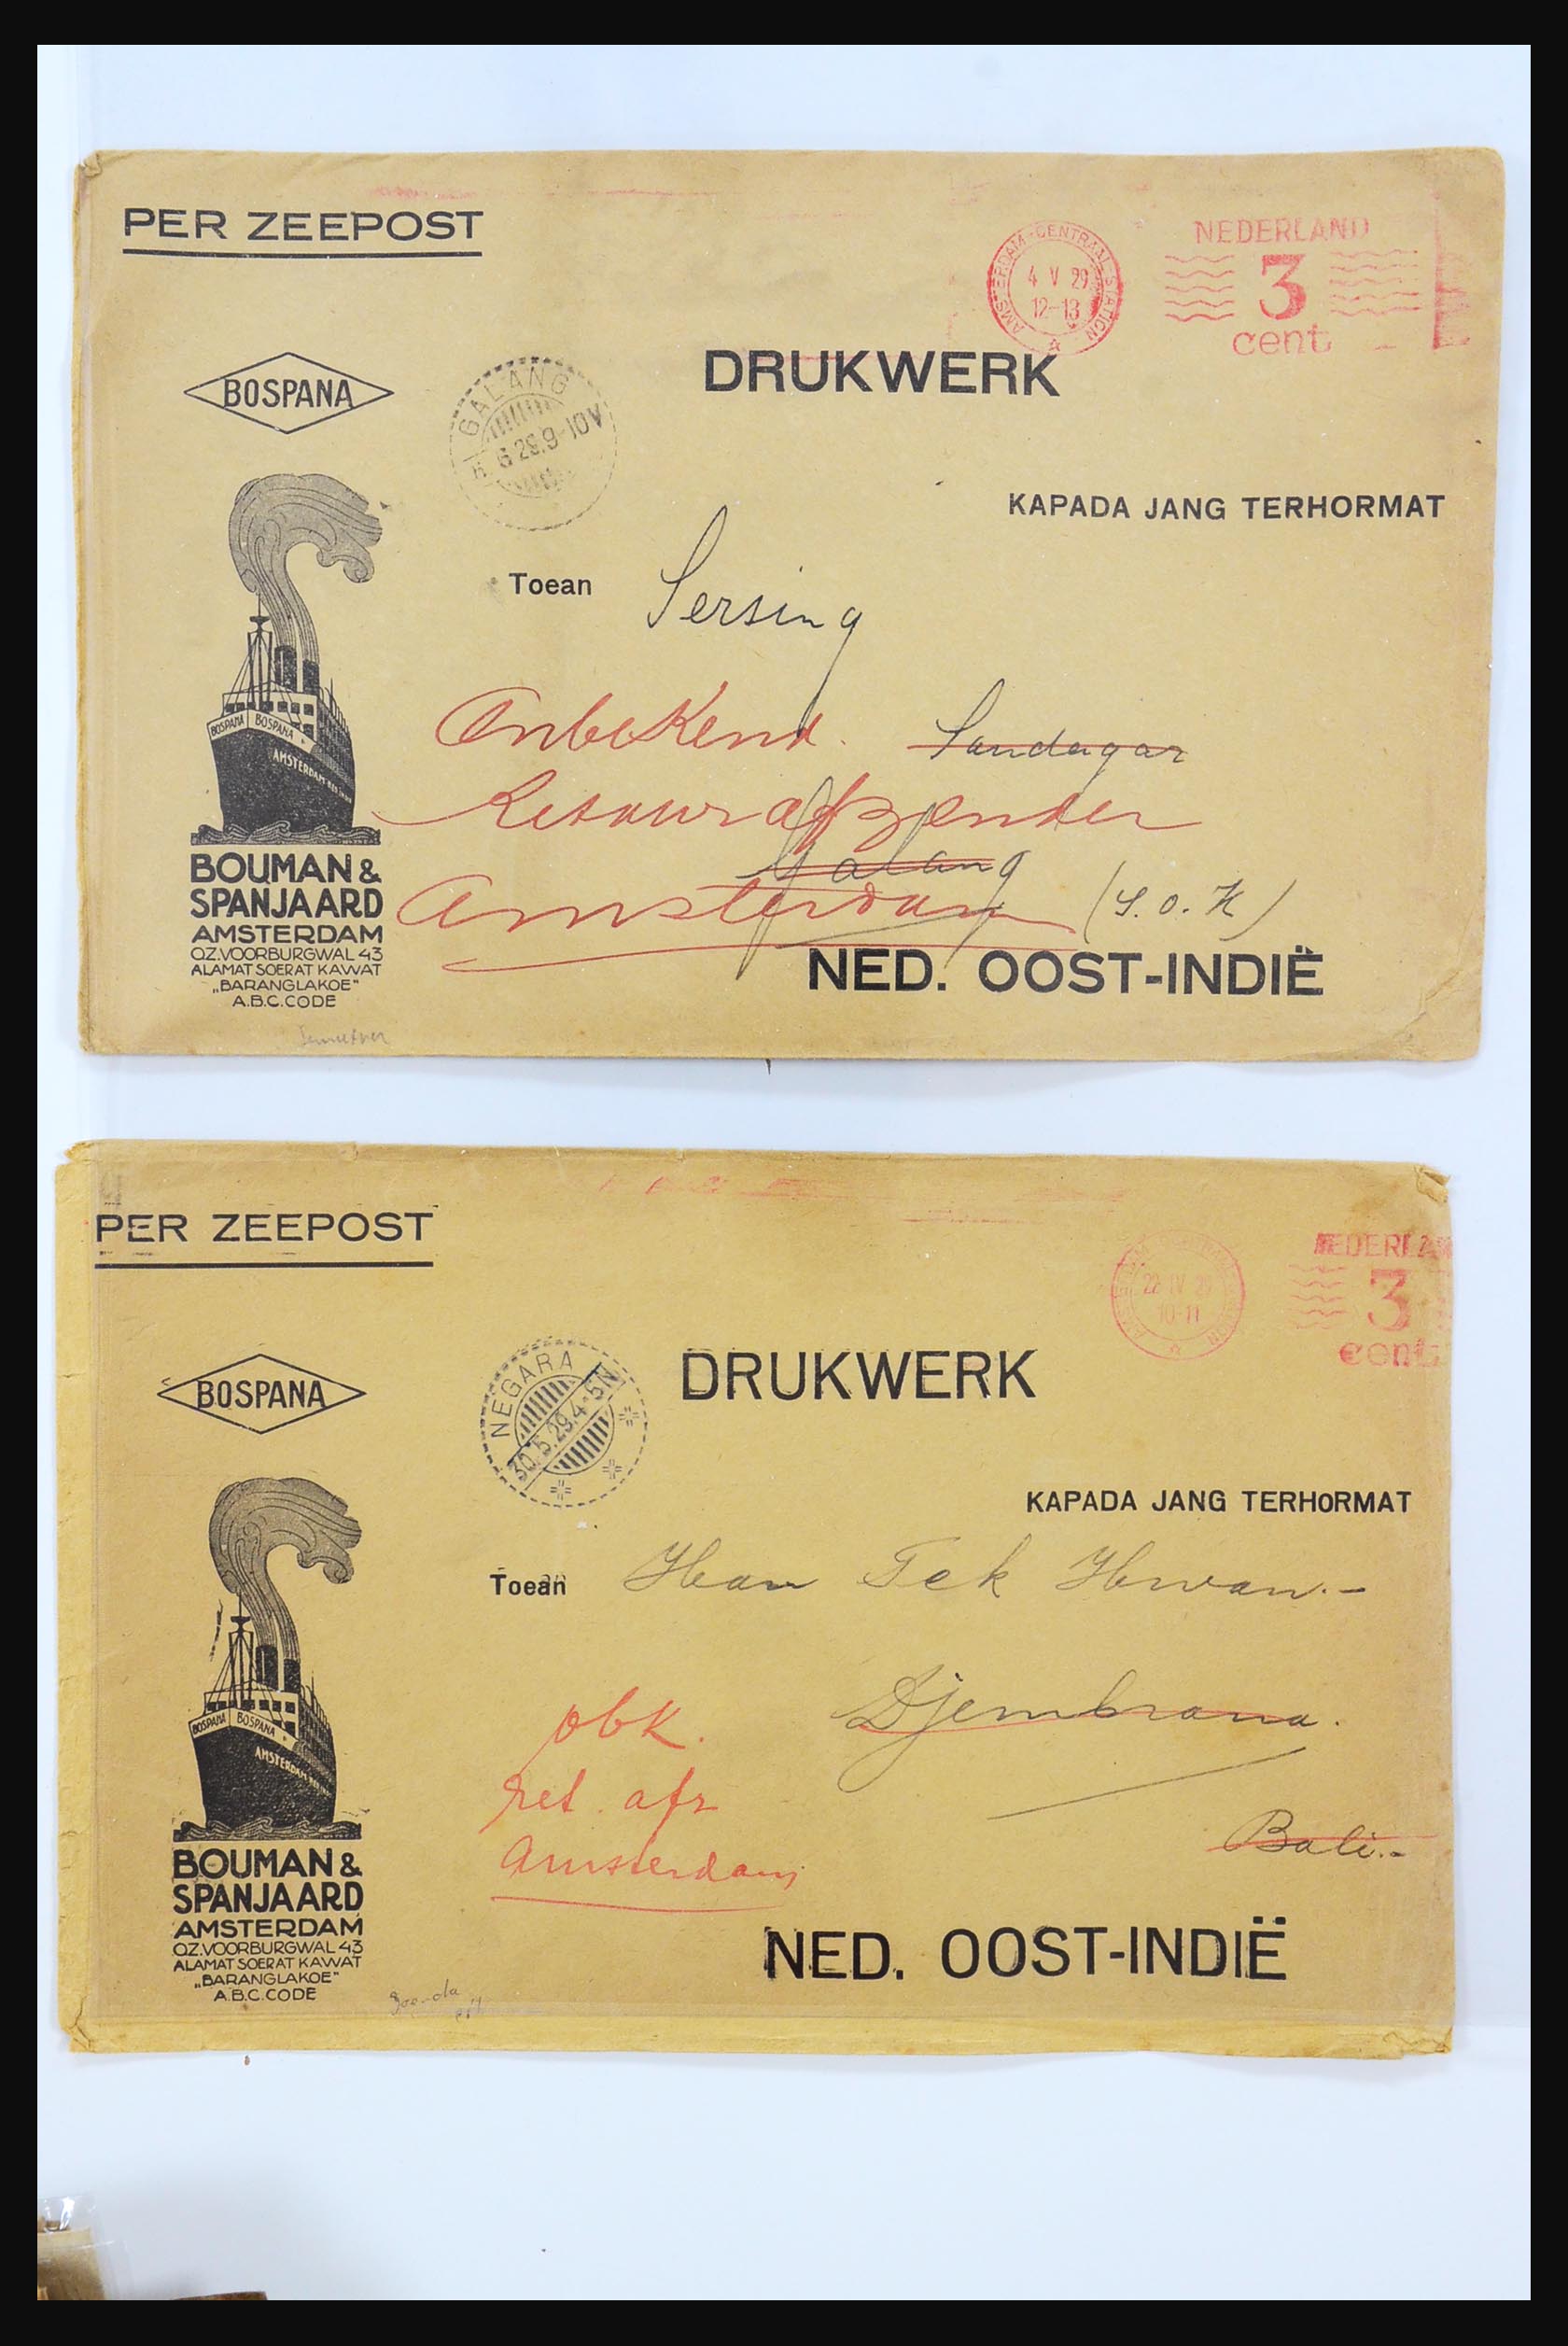 PER ZEEPOST
AMSTERDAM-CENTRAAL STATION
4 V 29
12-13
NEDERLAND
3
cent
BOSPANA
GALANG
6.29.9-10V
DRUKWERK
KAPADA JANG TERHORMAT
Toean Sersing
Onbekend. Saudagar
Retour afzender
Galang
Amsterdam (S.O.K)
NED. OOST-INDIË
BOSPANA BOSPANA
AMSTERDAM
BOUMAN &
SPANJAARD
AMSTERDAM
OZ.VOORBURGWAL 43
ALAMAT SOERAT KAWAT
„BARANGLAKOE”
A.B.C.CODE
PER ZEEPOST
22 IV 29
10-11
NEDERLA
3
cent
BOSPANA
NEGARA
30.5.29.4-5N
DRUKWERK
KAPADA JANG TERHORMAT
Toean Han Tek Hwan.-
obk.
Djembrana.
ret. afz
Bali.-
Amsterdam
NED. OOST-INDIË
BOSPANA BOSPANA
AMSTERDAM
BOUMAN &
SPANJAARD
AMSTERDAM
OZ.VOORBURGWAL 43
ALAMAT SOERAT KAWAT
„BARANGLAKOE”
A.B.C.CODE